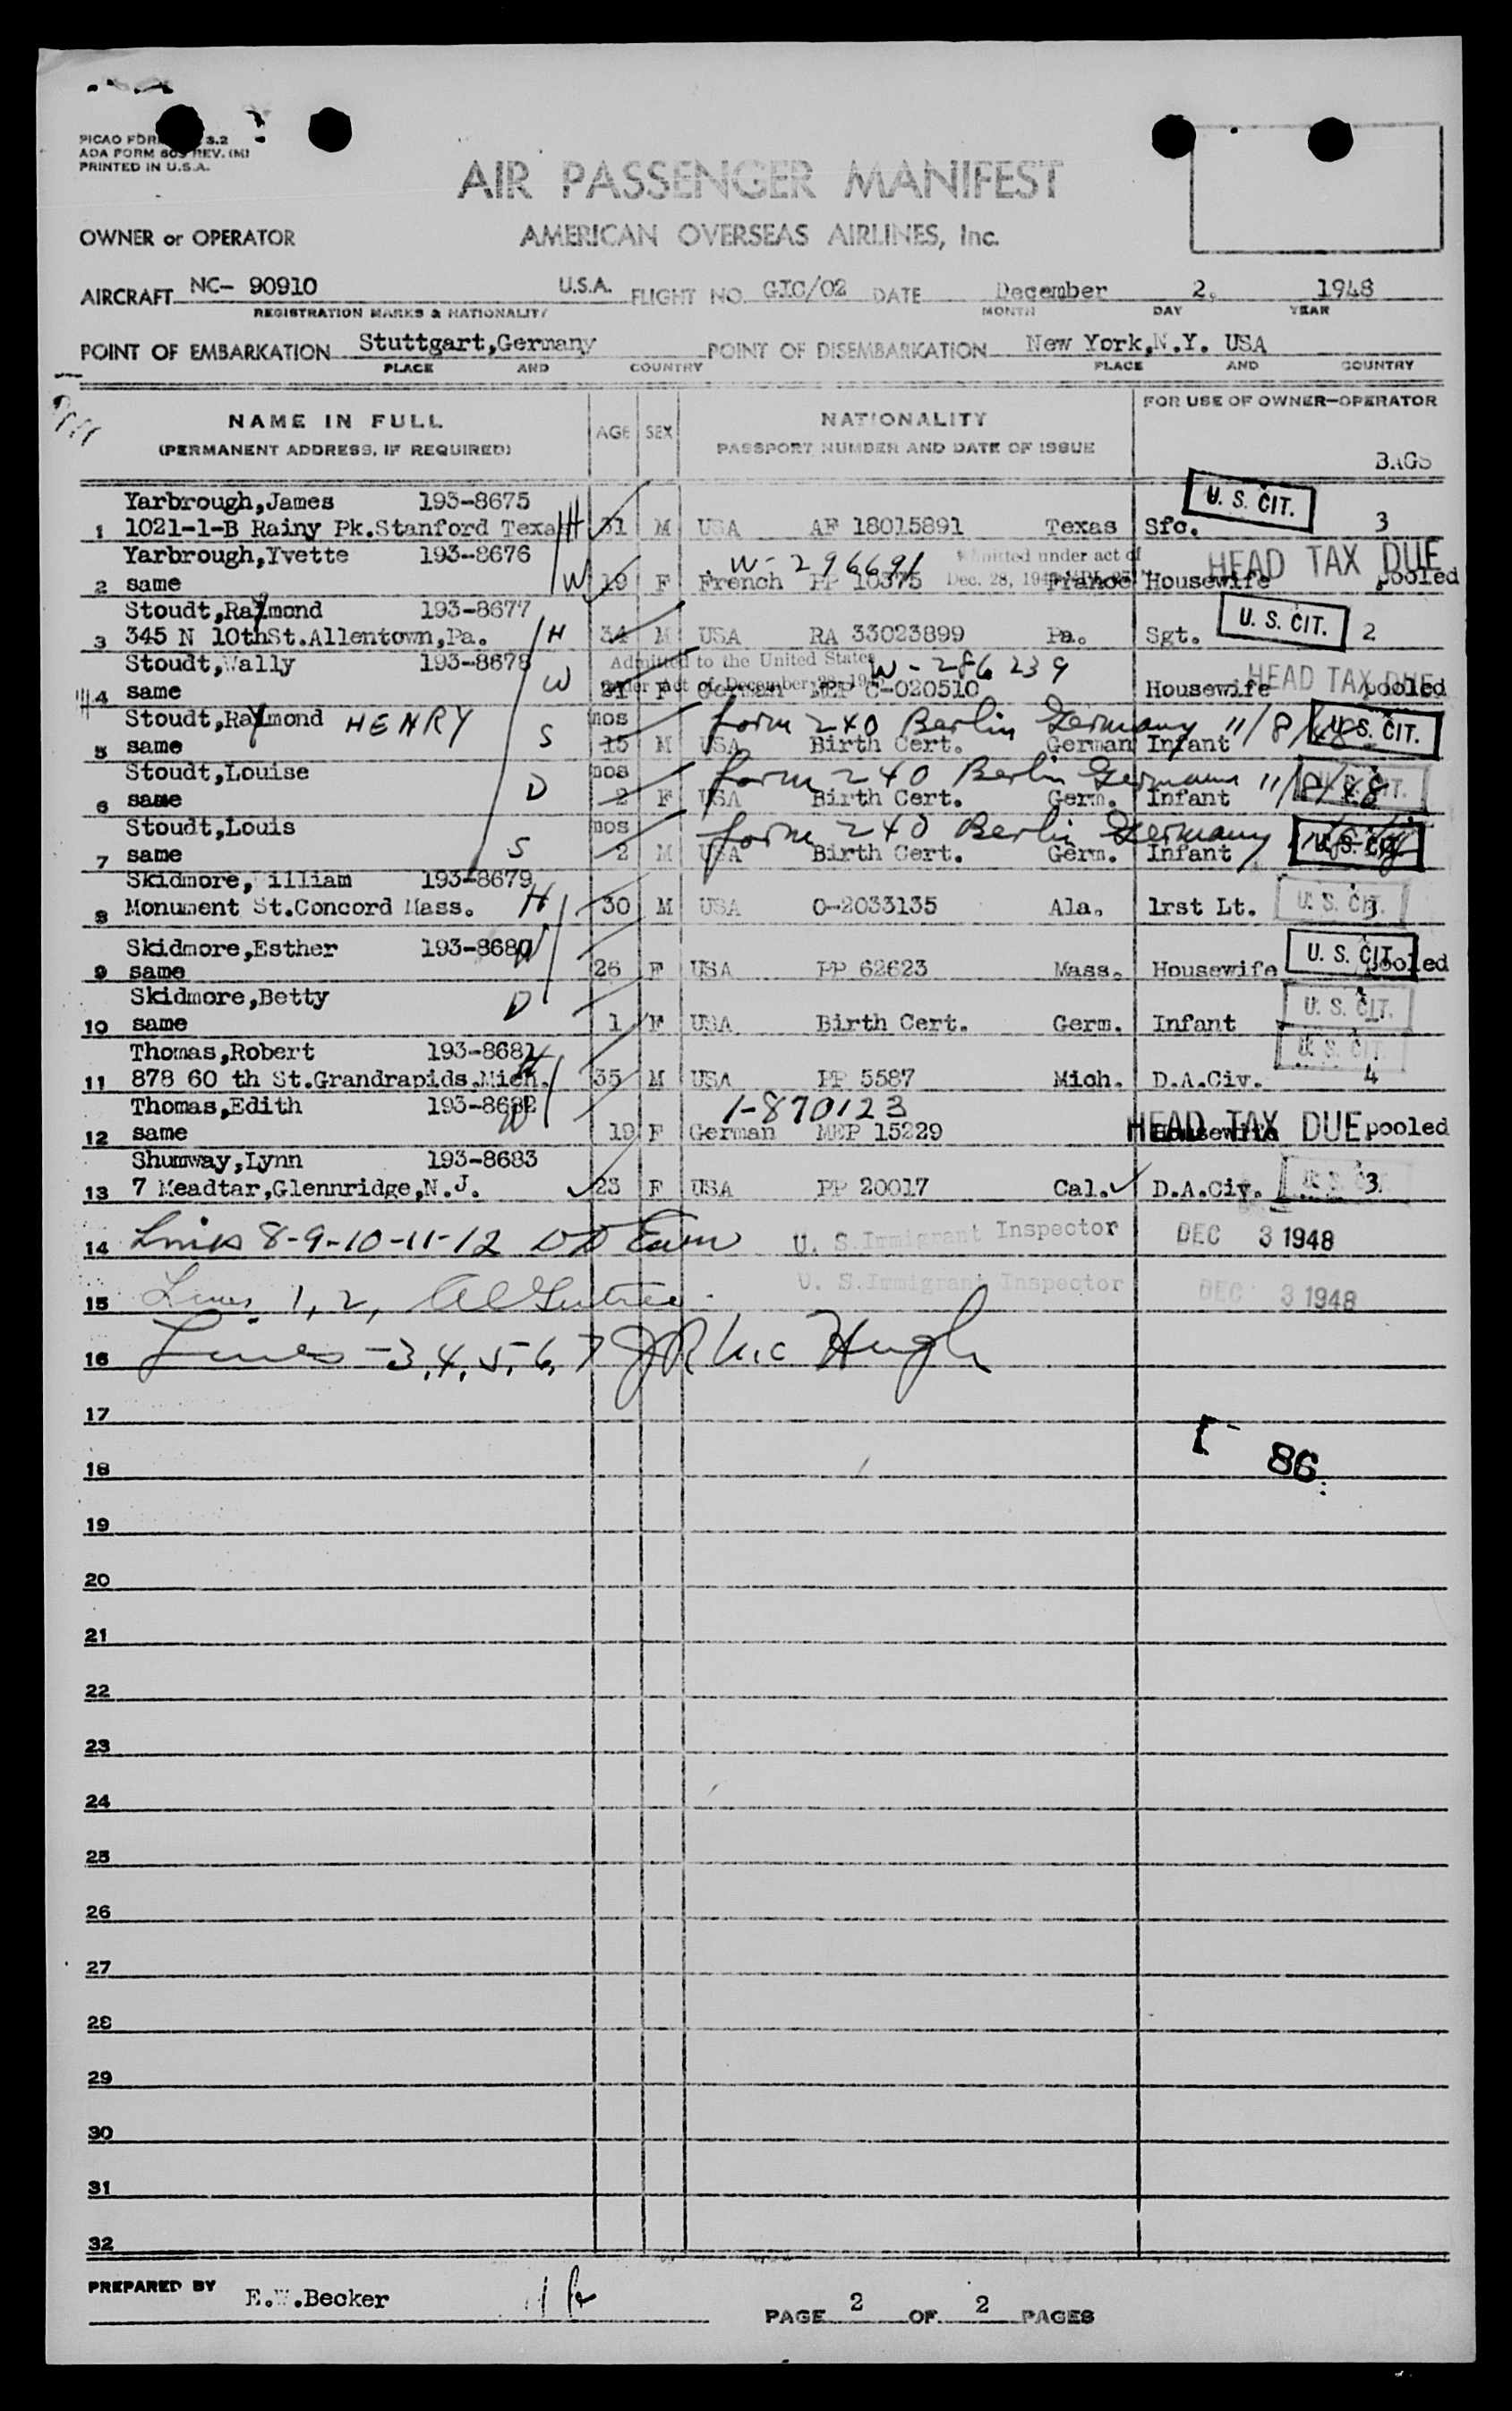 PICAO FORM S.2
ADA FORM 609 REV. (M)
PRINTED IN U.S.A.
AIR PASSENGER MANIFEST
OWNER or OPERATOR AMERICAN OVERSEAS AIRLINES, Inc.
AIRCRAFT NC- 90910 U.S.A. FLIGHT NO. GIC/02 DATE December 2, 1948
REGISTRATION MARKS & NATIONALITY MONTH DAY YEAR
POINT OF EMBARKATION Stuttgart,Germany POINT OF DISEMBARKATION New York,N.Y. USA
PLACE AND COUNTRY PLACE AND COUNTRY
NAME IN FULL AGE SEX NATIONALITY FOR USE OF OWNER-OPERATOR
(PERMANENT ADDRESS, IF REQUIRED) PASSPORT NUMBER AND DATE OF ISSUE BAGS
Yarbrough,James 193-8675 U. S. CIT.
1 1021-1-B Rainy Pk.Stanford Texas H 31 M USA AF 18015891 Texas Sfc. 3
Yarbrough,Yvette 193-8676 W-296691 Admitted under act of HEAD TAX DUE
2 same W 19 F French PP 10375 Dec. 28, France Housewife pooled
Stoudt,Raymond 193-8677 U. S. CIT.
3 345 N 10thSt.Allentown,Pa. H 34 M USA RA 33023899 Pa. Sgt. 2
Stoudt,Wally 193-8678 Admitted to the United States W-286239 HEAD TAX DUE
4 same W 21 F under act of December 28, German MEP C-020510 Housewife pooled
Stoudt,Raymond HENRY mos form 240 Berlin Germany 11/8/48 U. S. CIT.
5 same S 15 M USA Birth Cert. German Infant
Stoudt,Louise mos form 240 Berlin Germany 11/8/48 U. S. CIT.
6 same D 2 F USA Birth Cert. Germ. Infant
Stoudt,Louis mos form 240 Berlin Germany U. S. CIT.
7 same S 2 M USA Birth Cert. Germ. Infant
Skidmore, illiam 193-8679
8 Monument St.Concord Mass. H 30 M USA O-2033135 Ala. 1rst Lt. U. S. CIT.
Skidmore,Esther 193-8680 W U. S. CIT.
9 same 26 F USA PP 62623 Mass. Housewife pooled
Skidmore,Betty D U. S. CIT.
10 same 1 F USA Birth Cert. Germ. Infant
Thomas,Robert 193-8681 H U. S. CIT.
11 878 60 th St.Grandrapids.Mich. 35 M USA PP 5587 Mich. D.A.Civ. 4
Thomas,Edith 193-8682 W 1-870123 HEAD TAX DUE
12 same 19 F German MEP 15229 Housewife pooled
Shumway,Lynn 193-8683
13 7 Meadtar,Glennridge,N.J. 23 F USA PP 20017 Cal. D.A.Civ. 3
14 Lines 8-9-10-11-12 U. S. Immigrant Inspector DEC 3 1948
15 Lines 1, 2, U. S. Immigrant Inspector DEC 3 1948
16 Lines -3,4,5,6,7 J R McHugh
17
86
18
19
20
21
22
23
24
25
26
27
28
29
30
31
32
PREPARED BY E.W.Becker PAGE 2 OF 2 PAGES